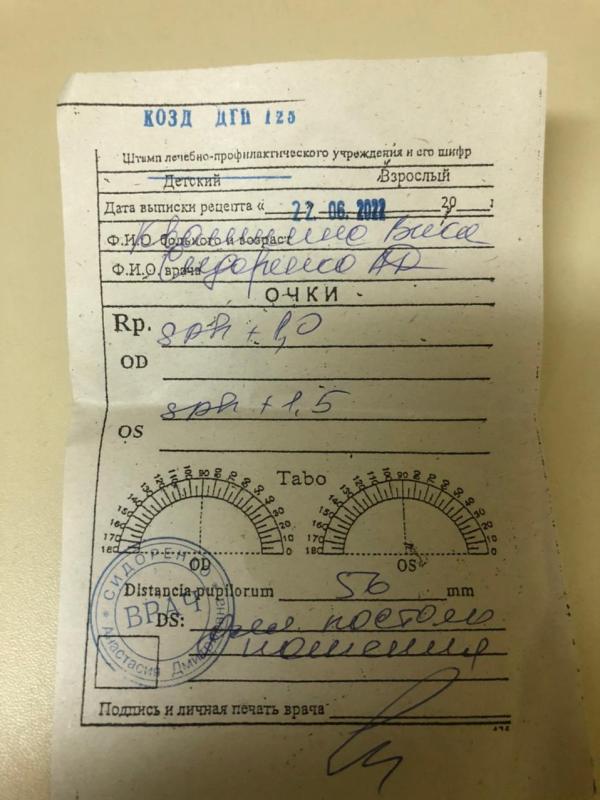 КОЗД ДГП 125
Штамп лечебно-профилактического учреждения и его шифр
Детский Взрослый
Дата выписки рецепта « 22. 06. 2022 20 г
Ф.И.О. больного и возраст Вика
Ф.И.О. врача Сидоренко АД
ОЧКИ
Rp. sph + 1,0
OD
sph + 1,5
OS
Tabo
180 170 160 150 90 30 20 10 0
180 170 160 150 90 30 20 10 0
OD OS
Distancia pupilorum 56 mm
DS: для постоян
ношения
СИДОРЕНКО
ВРАЧ
Анастасия Дмитриевна
Подпись и личная печать врача